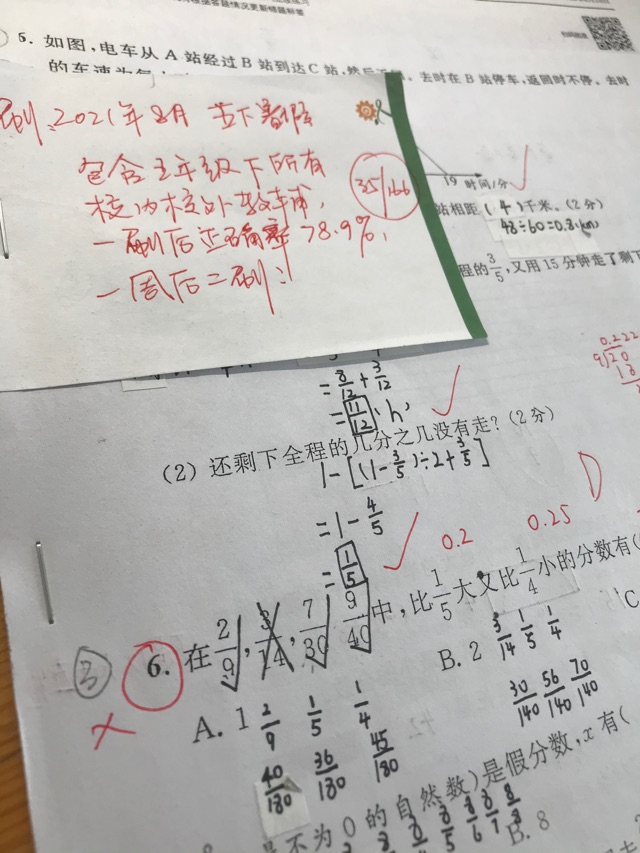 5. 如图,电车从 A 站经过 B 站到达 C 站,然后
去时在 B 站停车,返回时不停。去时
的车速为每
2021年8月 苦下暑假
包含五年级下所有
校内校外教辅,
一刷后正确率78.9%,
一周后二刷
35/166
19 时间/分
站相距(4)千米。(2分)
48÷60=0.8(km)
程的3/5,又用15分钟走了剩下
0.222
9√20
18
=8/12+3/12
=11/12(h)
(2) 还剩下全程的几分之几没有走?(2分)
1-[(1-3/5)÷2+3/5]
=1-4/5
=1/5
0.2 0.25 D
③ 6. 在2/9,3/14,7/30,9/40中,比1/5大又比1/4小的分数有(
A. 1 B. 2 C
2/9 1/5 1/4
40/180 36/180 45/180
3/14 1/5 1/4
30/140 56/140 70/140
是不为 0 的自然数)是假分数,x 有(
B. 8